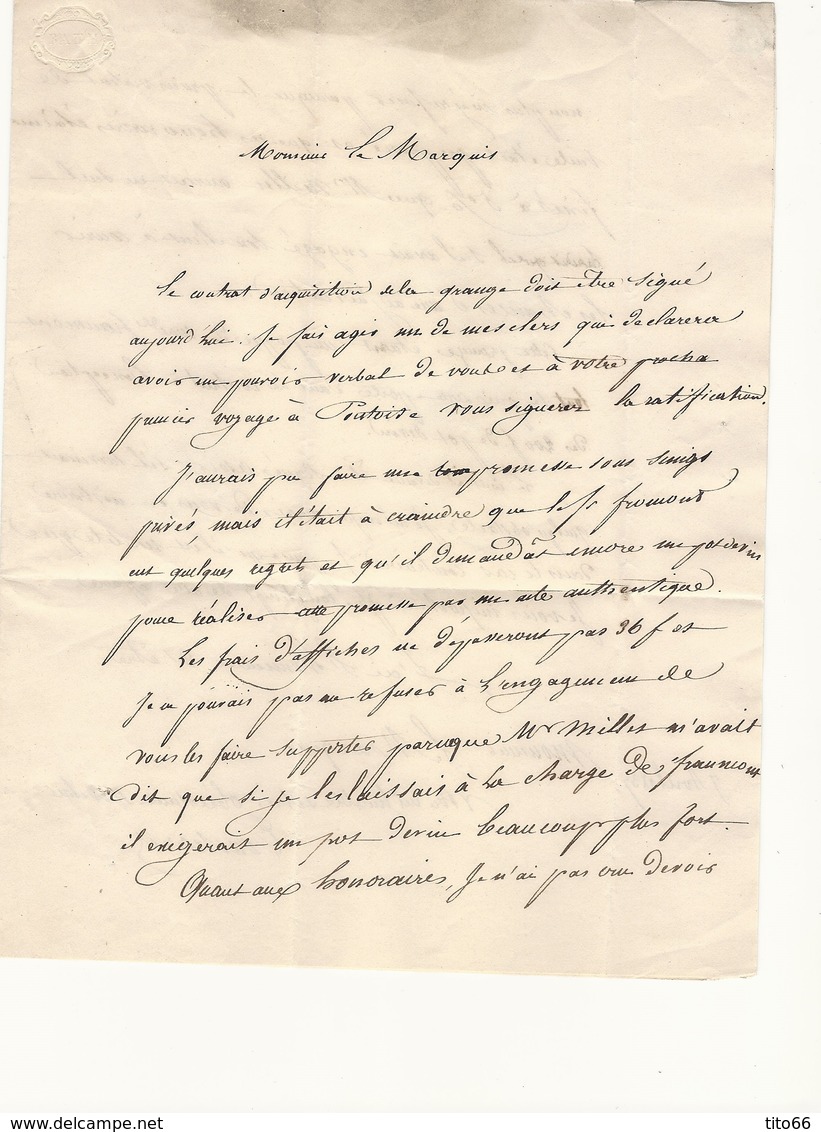 Monsieur le Marquis
Le contrat d'acquisition de la grange doit être signé
aujourd'hui : Je fais agir un de mes clercs qui declarera
avoir un pouvoir verbal de vous et à votre procha
premier voyage à Pontoise vous signerez la ratification.
J'aurais pu faire une promesse sous seings
privés, mais il était à craindre que le Sr fromont
eut quelques regrets et qu'il demandât encore un pot de vin
pour réaliser cette promesse par un acte authentique.
Les frais d'affiches ne dépasseront pas 36 f et
Je ne pouvais pas me refuser à l'engagement de
vous les faire supporter parceque Mr Millet m'avait
dit que si je les laissais à la charge de fraumont
il exigerait un pot de vin beaucoup plus fort.
Quant aux honoraires, Je n'ai pas cru devoir
tito66